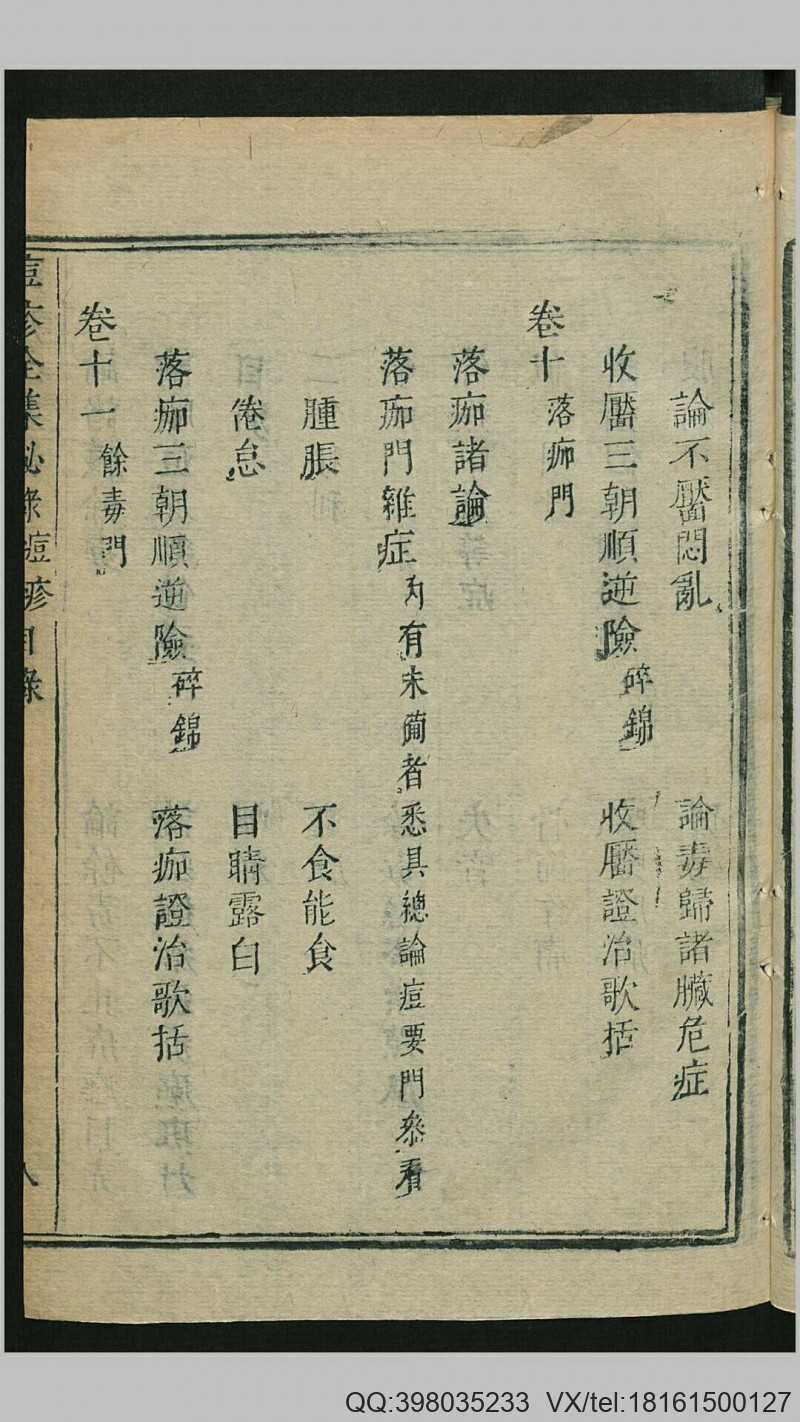 論不靨悶亂　論毒歸諸臟危症
收靨三朝順逆險碎錦　收靨證治歌括
卷十　落痂門
落痂諸論
落痂門雜症　內有未備者悉具總論痘要門參看
二腫脹　不食能食
倦怠　目睛露白
落痂三朝順逆險碎錦　落痂證治歌括
卷十一　餘毒門
痘疹全集秘錄痘疹目錄　八
QQ:398035233 VX/tel:18161500127